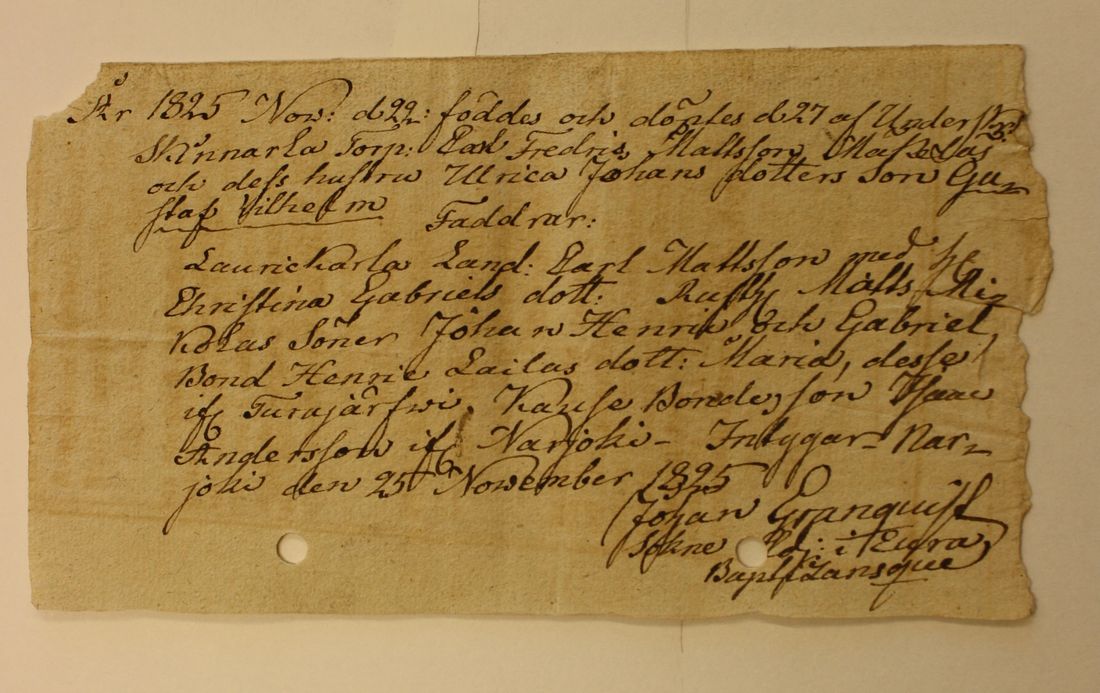 År 1825 Nov: d 22: föddes och döptes d 27 af Under
Skinnarla Torp: Carl Fredric Mattsson
och dess hustru Ulrica Johans dotters son Gu-
staf Vilhelm
Faddrar:
Laurickarla Land: Carl Mattsson med
Christina Gabriels dott: Matts Mi-
kolas Söner Johan Henric och Gabriel,
Bond Henric Lailas dott: Maria, desse
if Turajärfwi, Kause Bondes son Isaac
Andersson if Narjoki - Intygar Nar-
joki den 25 November 1825
Johan Granquist
Sokne Adj: i Eura